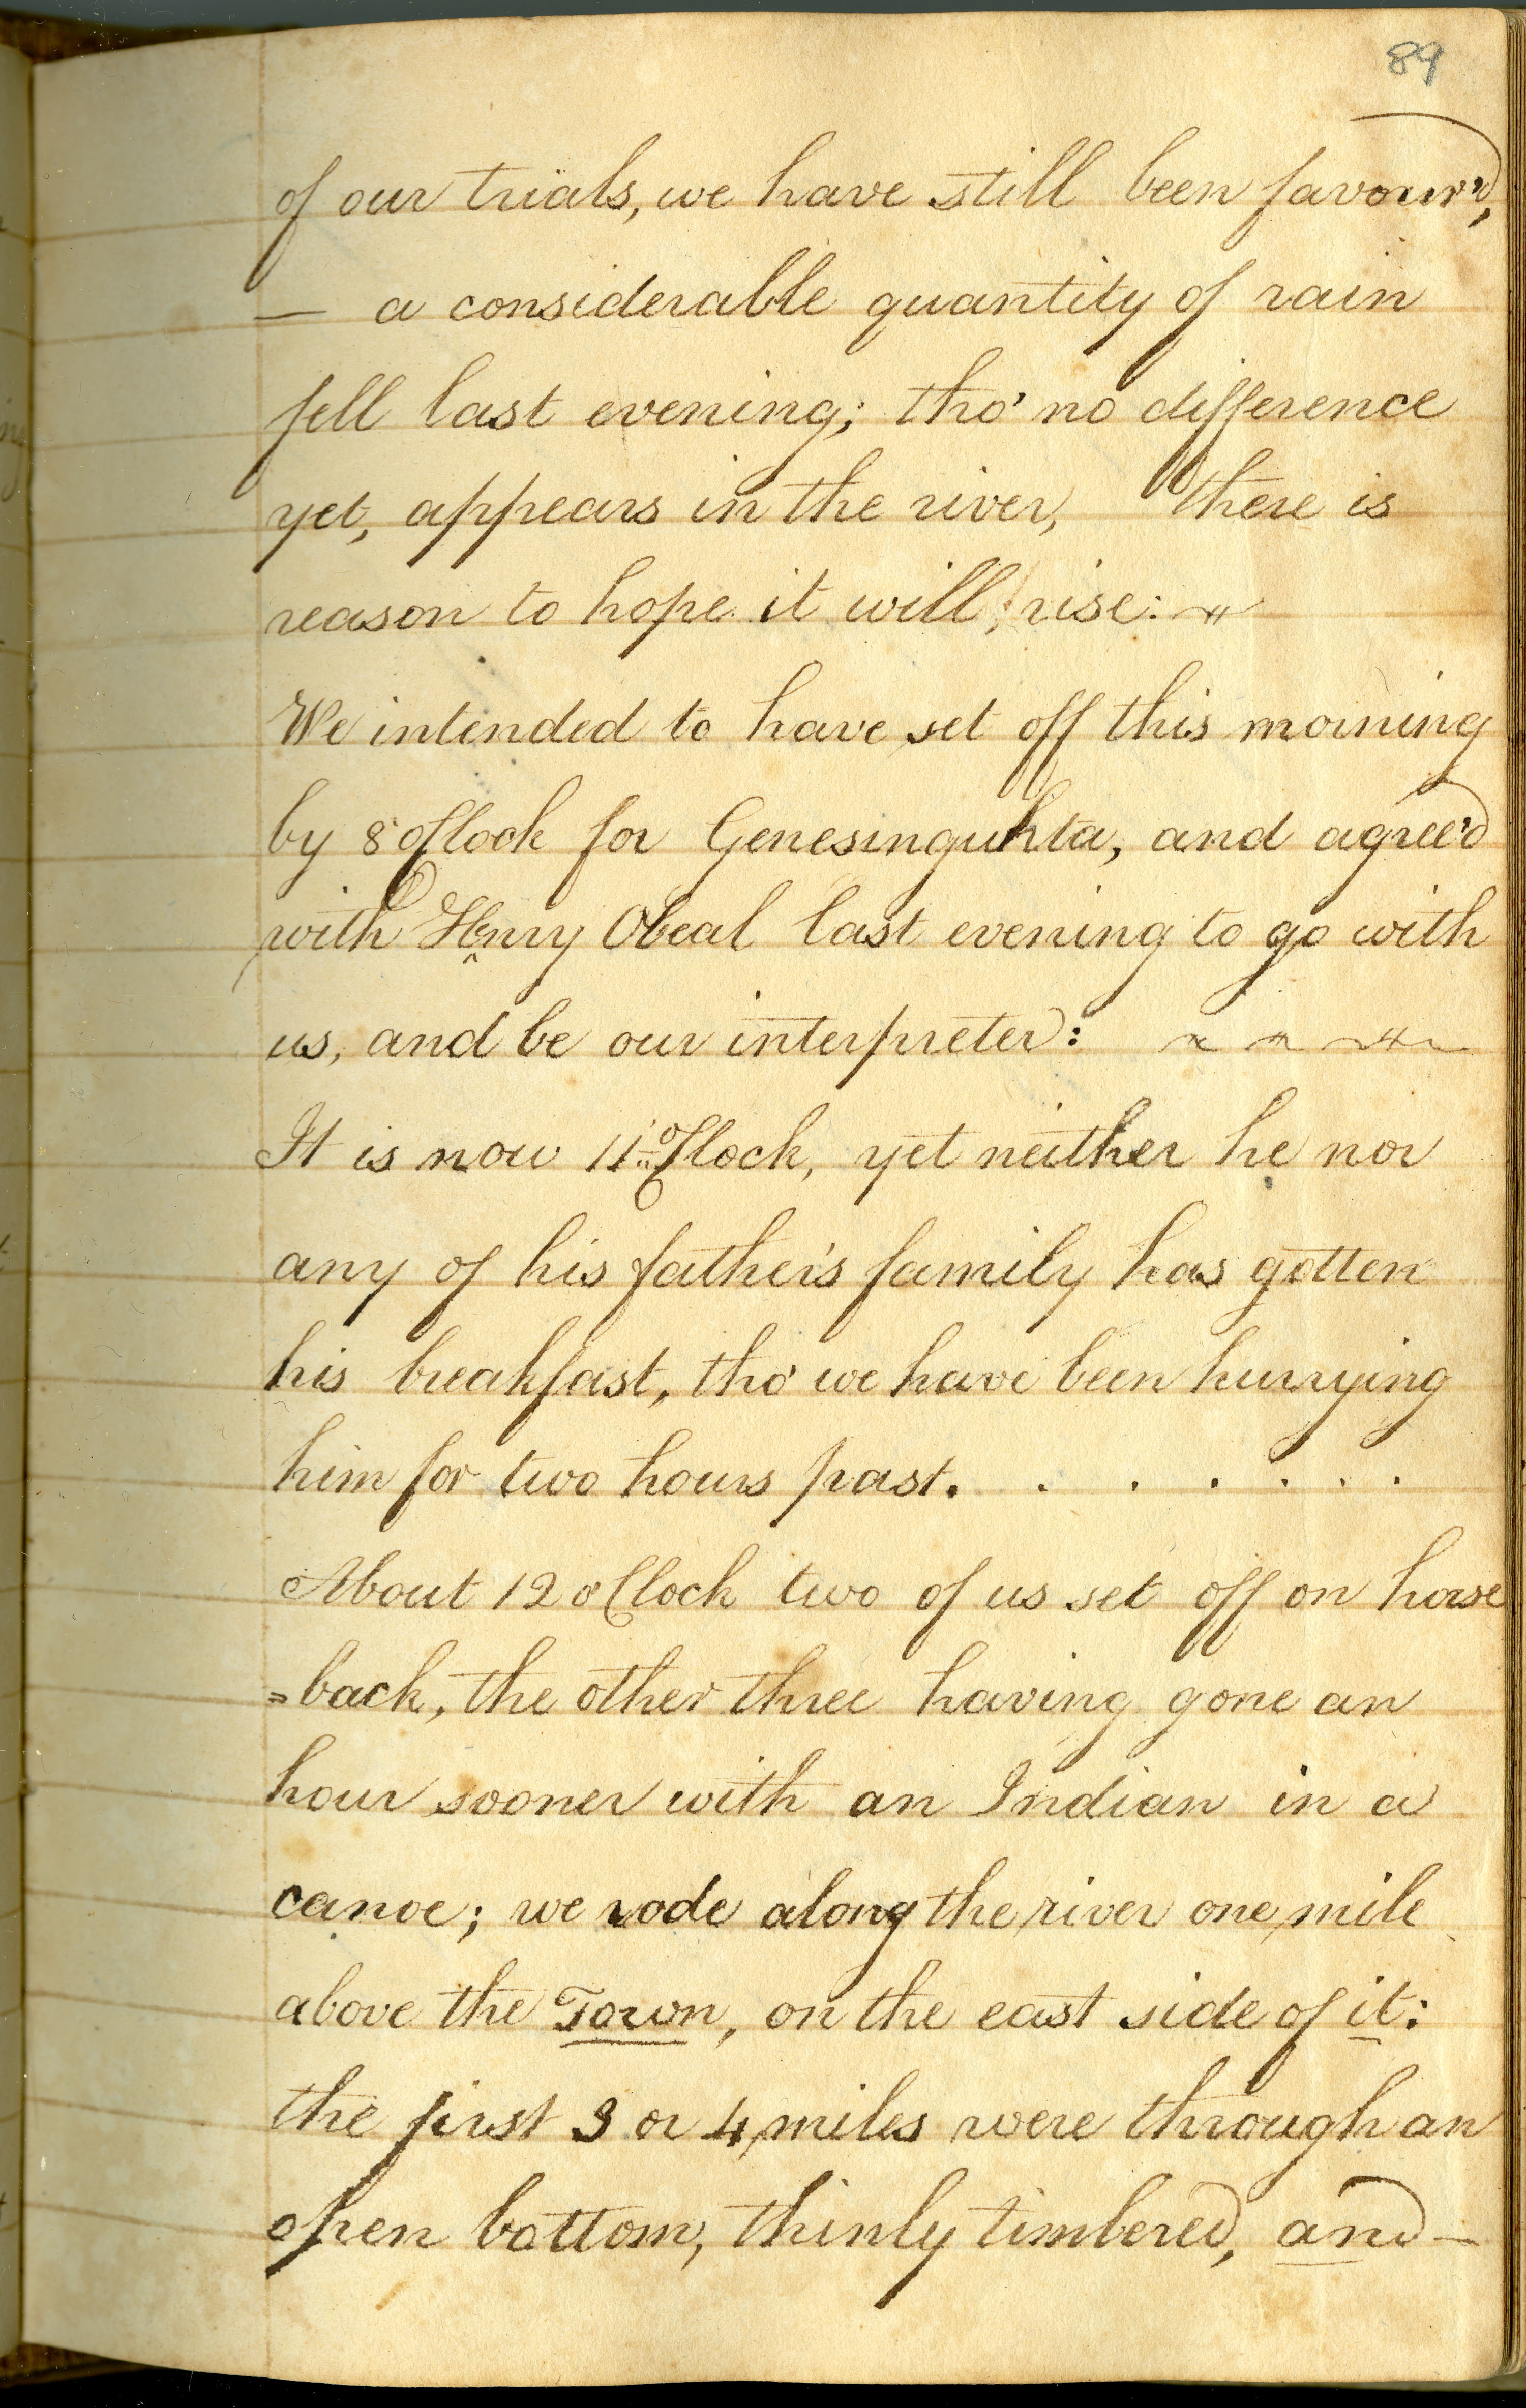 89
of our trials, we have still been favour'd,
— a considerable quantity of rain
fell last evening; tho' no difference
yet, appears in the river, there is
reason to hope it will, rise:
We intended to have set off this morning
by 8 oClock for Genesinguhta, and agree'd
with Henry Obeal last evening to go with
us, and be our interpreter:
It is now 11 oClock, yet neither he nor
any of his father's family has gotten
his breakfast, tho' we have been hurrying
him for two hours past. . . . . . .
About 12 oClock two of us set off on horse
=back, the other three having gone an
hour sooner with an Indian in a
canoe; we rode along the river one mile
above the Town, on the east side of it:
the first 3 or 4 miles were through an
open bottom, thinly timbered, and —